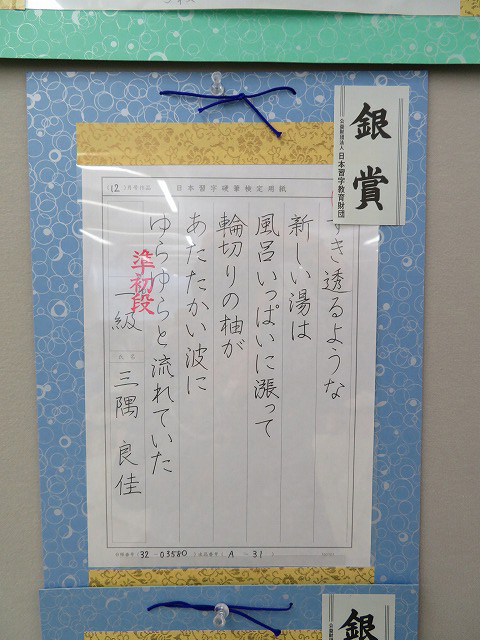 銀賞
公益財団法人 日本習字教育財団
(12)月号作品 日本習字硬筆検定用紙
すき透るような
新しい湯は
風呂いっぱいに漲って
輪切りの柚が
あたたかい波に
ゆらゆらと流れていた
準初段
一級
氏名
三隅 良佳
32-03580
A-31
銀